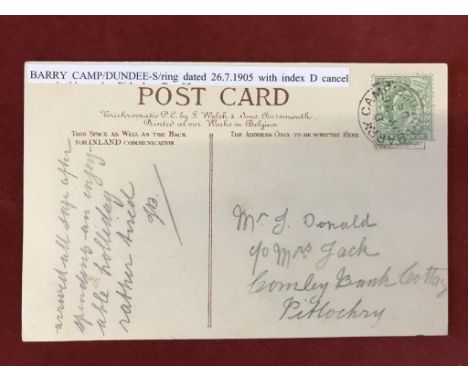 BARRY CAMP/DUNDEE-S/ring dated 26.7.1905 with index D cancel
POST CARD
Trichromatic P.C. by J. Welch & Sons Portsmouth.
Printed at our Works in Belgium
THIS SPACE AS WELL AS THE BACK
FOR INLAND COMMUNICATION.
THE ADDRESS ONLY TO BE WRITTEN HERE
CAMP
BARRY
arrived all safe after
spending an enjoy-
able holliday
rather tired
Mr J. Donald
c/o Mrs Jack
Comley Bank Cottag
Pitlochry